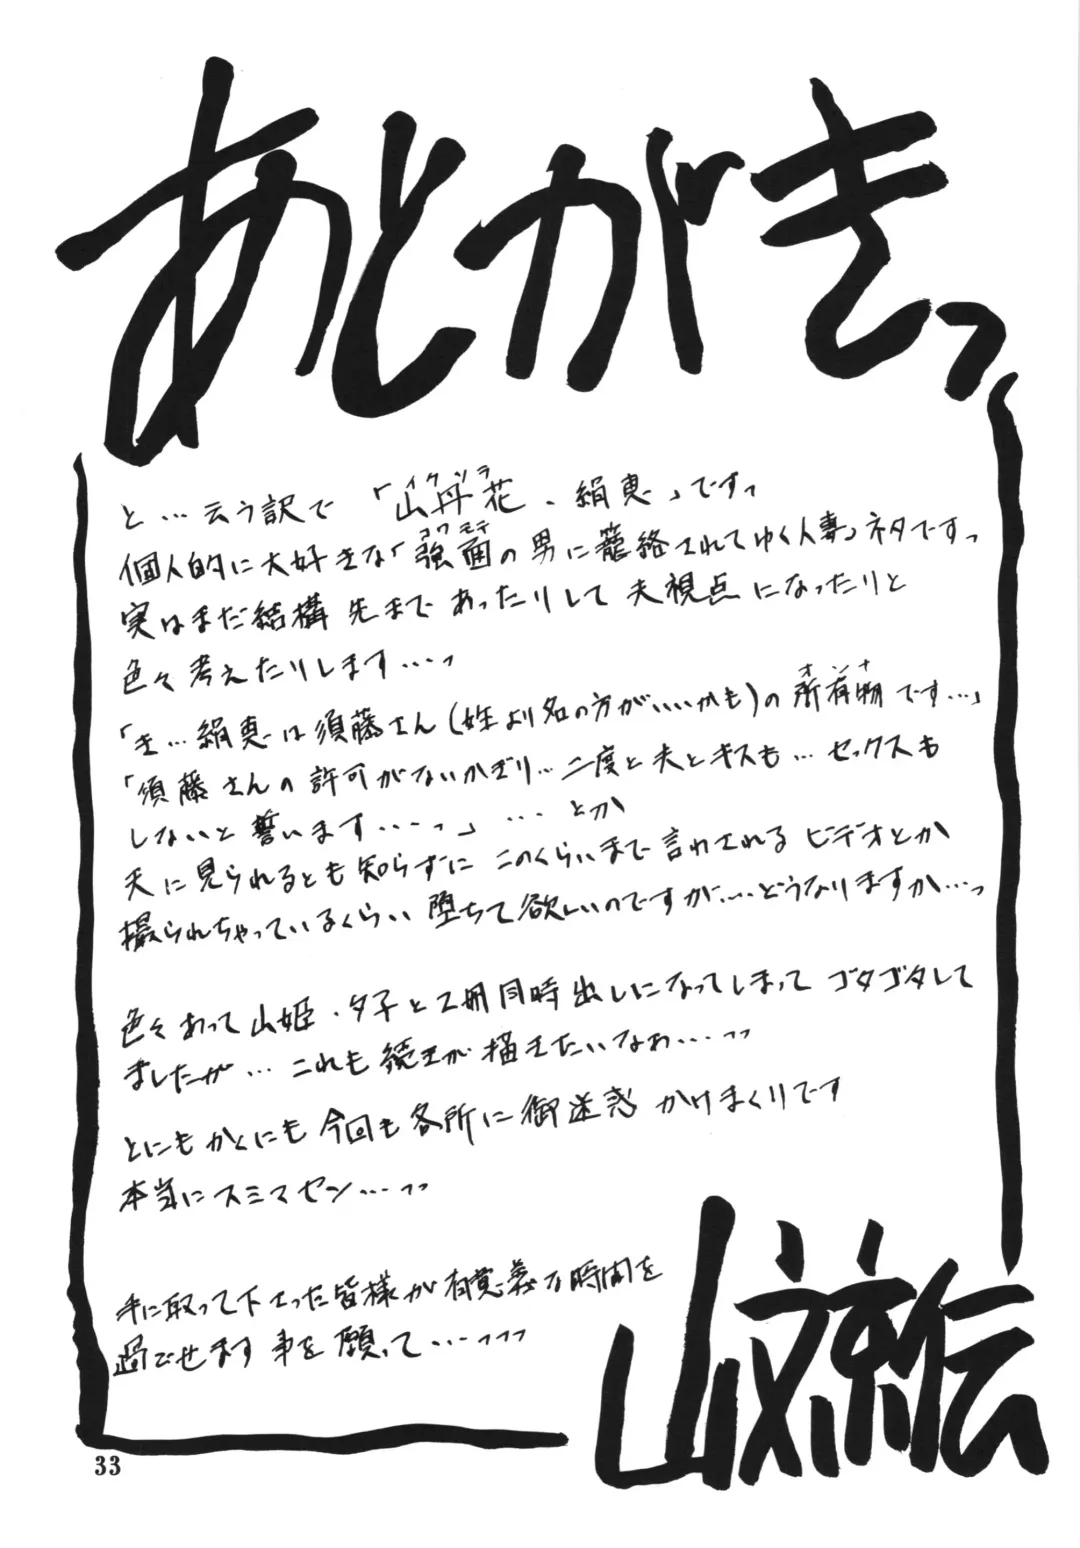 あとがきっ
と…云う訳で「山丹花・絹恵」ですっ
個人的に大好きな「強面の男に籠絡されてゆく人妻」ネタですっ
実はまだ結構先まであったりして夫視点になったりと
色々考えたりします…っ
「き…絹恵は須藤さん(姓より名の方がいいかも)の所有物です…」
「須藤さんの許可がないかぎり…二度と夫とキスも…セックスも
しないと誓います…っ」…とか
夫に見られるとも知らずにこのくらいまで言わされるビデオとか
撮られちゃっているくらい堕ちて欲しいのですが…どうなりますか…っ
色々あって山姫・夕子と2冊同時出しになってしまってゴタゴタして
ましたが…これも続きが描きたいなぁ…っっ
とにもかくにも今回も各所に御迷惑かけまくりです
本当にスミマセン…っっ
手に取って下さった皆様が有意義な時間を
過ごせます事を願って…っっっ
山文京伝
33